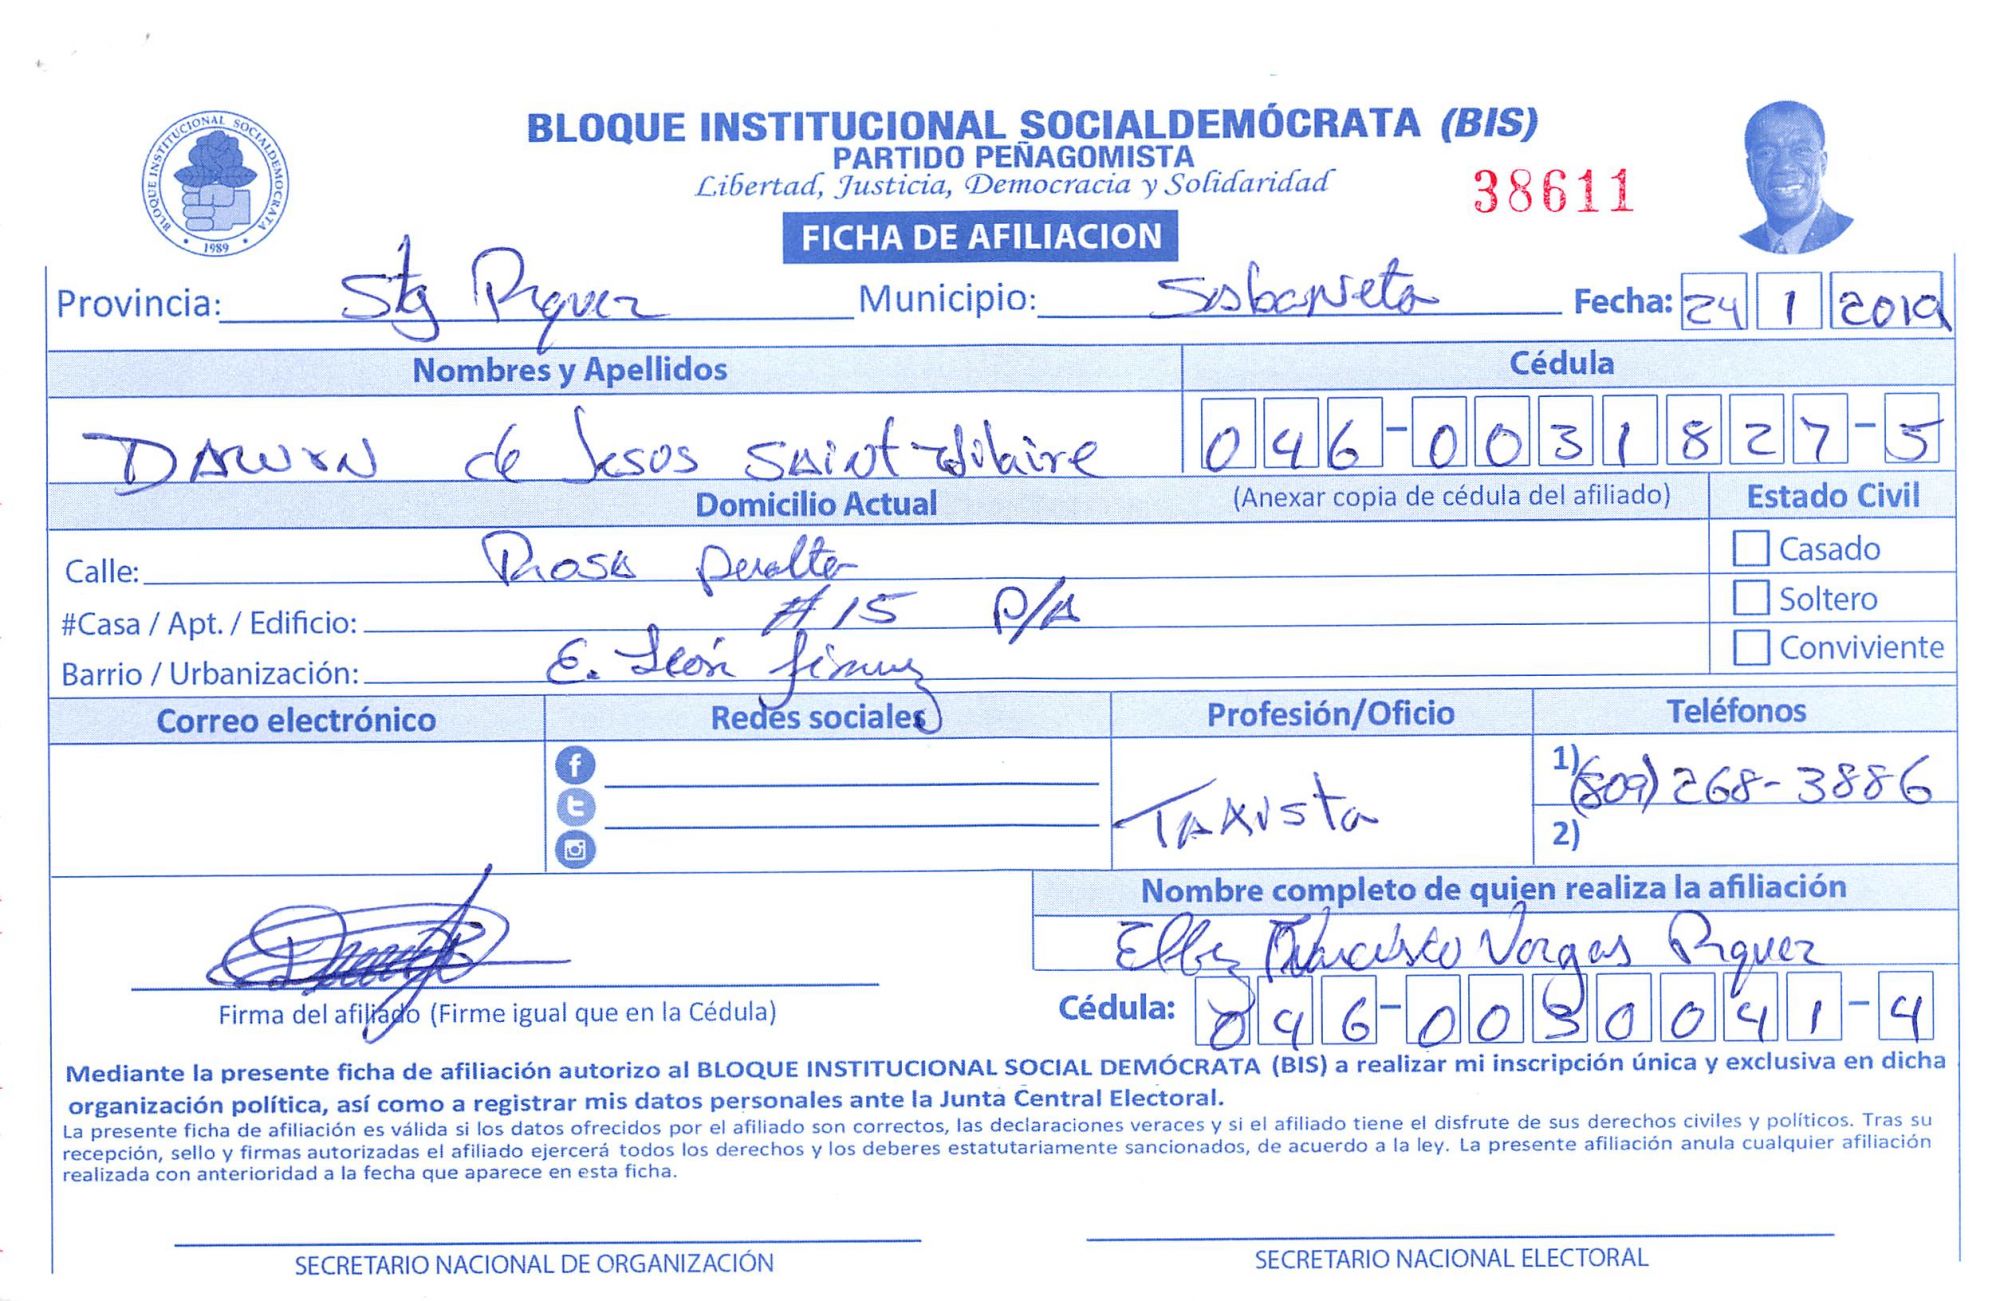 BLOQUE INSTITUCIONAL SOCIALDEMOCRATA
1989
BLOQUE INSTITUCIONAL SOCIALDEMÓCRATA (BIS)
PARTIDO PEÑAGOMISTA
Libertad, Justicia, Democracia y Solidaridad
38611
FICHA DE AFILIACION
Provincia: Stg Rguez Municipio: Sabaneta Fecha: 24 1 2019
Nombres y Apellidos Cédula
DARWIN de Jesus Saint-Hilaire 046-0031827-5
Domicilio Actual (Anexar copia de cédula del afiliado) Estado Civil
Calle: Rosa Peralta Casado
#Casa / Apt. / Edificio: #15 P/A Soltero
Barrio / Urbanización: E. León Jimenez Conviviente
Correo electrónico Redes sociales Profesión/Oficio Teléfonos
Taxista 1) (809) 268-3886
2)
Nombre completo de quien realiza la afiliación
Francisco Vargas Rguez
Firma del afiliado (Firme igual que en la Cédula) Cédula: 046-0030041-4
Mediante la presente ficha de afiliación autorizo al BLOQUE INSTITUCIONAL SOCIAL DEMÓCRATA (BIS) a realizar mi inscripción única y exclusiva en dicha
organización política, así como a registrar mis datos personales ante la Junta Central Electoral.
La presente ficha de afiliación es válida si los datos ofrecidos por el afiliado son correctos, las declaraciones veraces y si el afiliado tiene el disfrute de sus derechos civiles y políticos. Tras su
recepción, sello y firmas autorizadas el afiliado ejercerá todos los derechos y los deberes estatutariamente sancionados, de acuerdo a la ley. La presente afiliación anula cualquier afiliación
realizada con anterioridad a la fecha que aparece en esta ficha.
SECRETARIO NACIONAL DE ORGANIZACIÓN SECRETARIO NACIONAL ELECTORAL